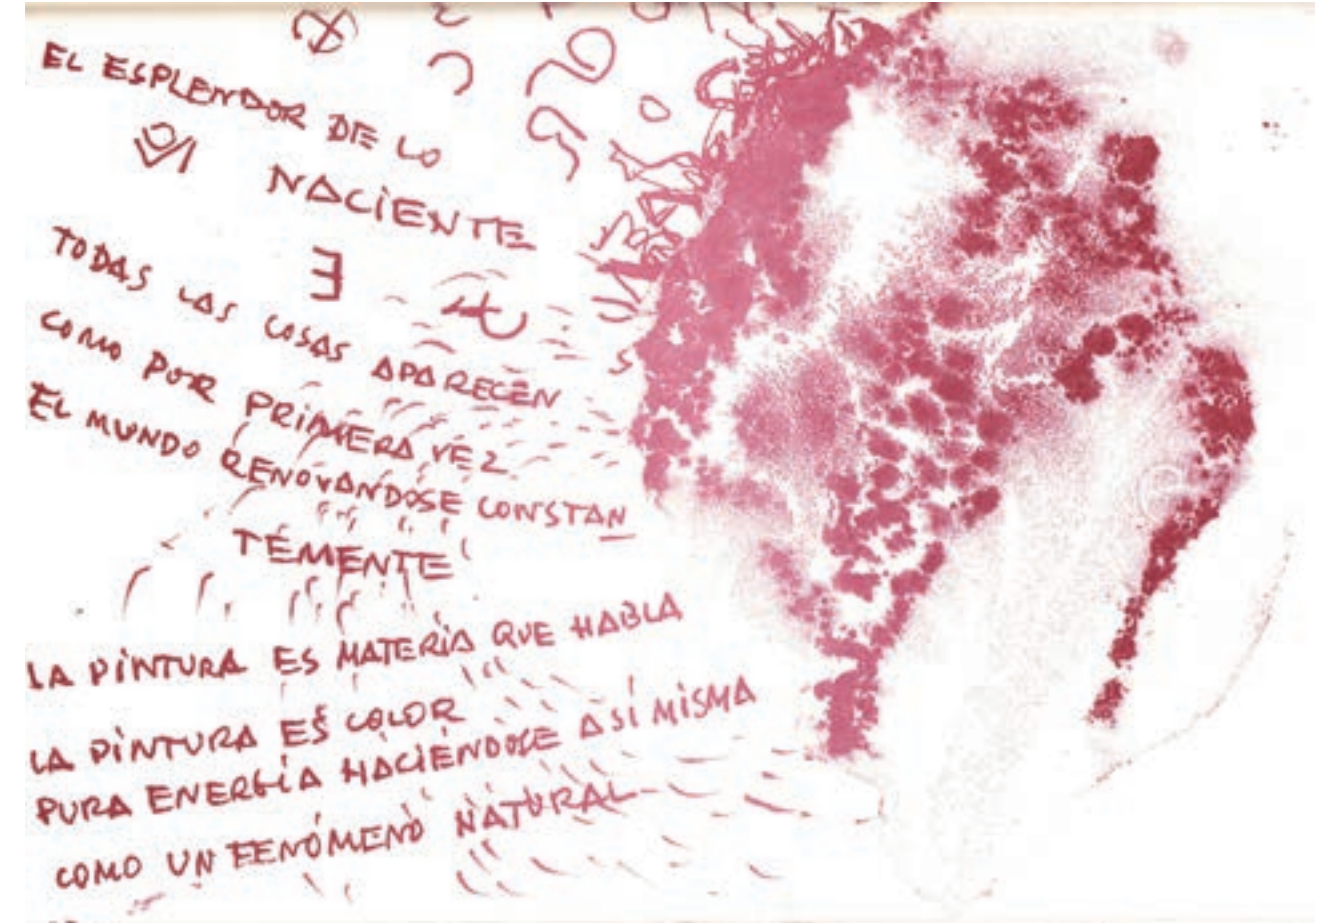 EL ESPLENDOR DE LO
NACIENTE
TODAS LAS COSAS APARECEN
COMO POR PRIMERA VEZ
EL MUNDO RENOVANDOSE CONSTAN
TEMENTE
LA PINTURA ES MATERIA QUE HABLA
LA PINTURA ES COLOR
PURA ENERGÍA HACIENDOSE A SÍ MISMA
COMO UN FENÓMENO NATURAL